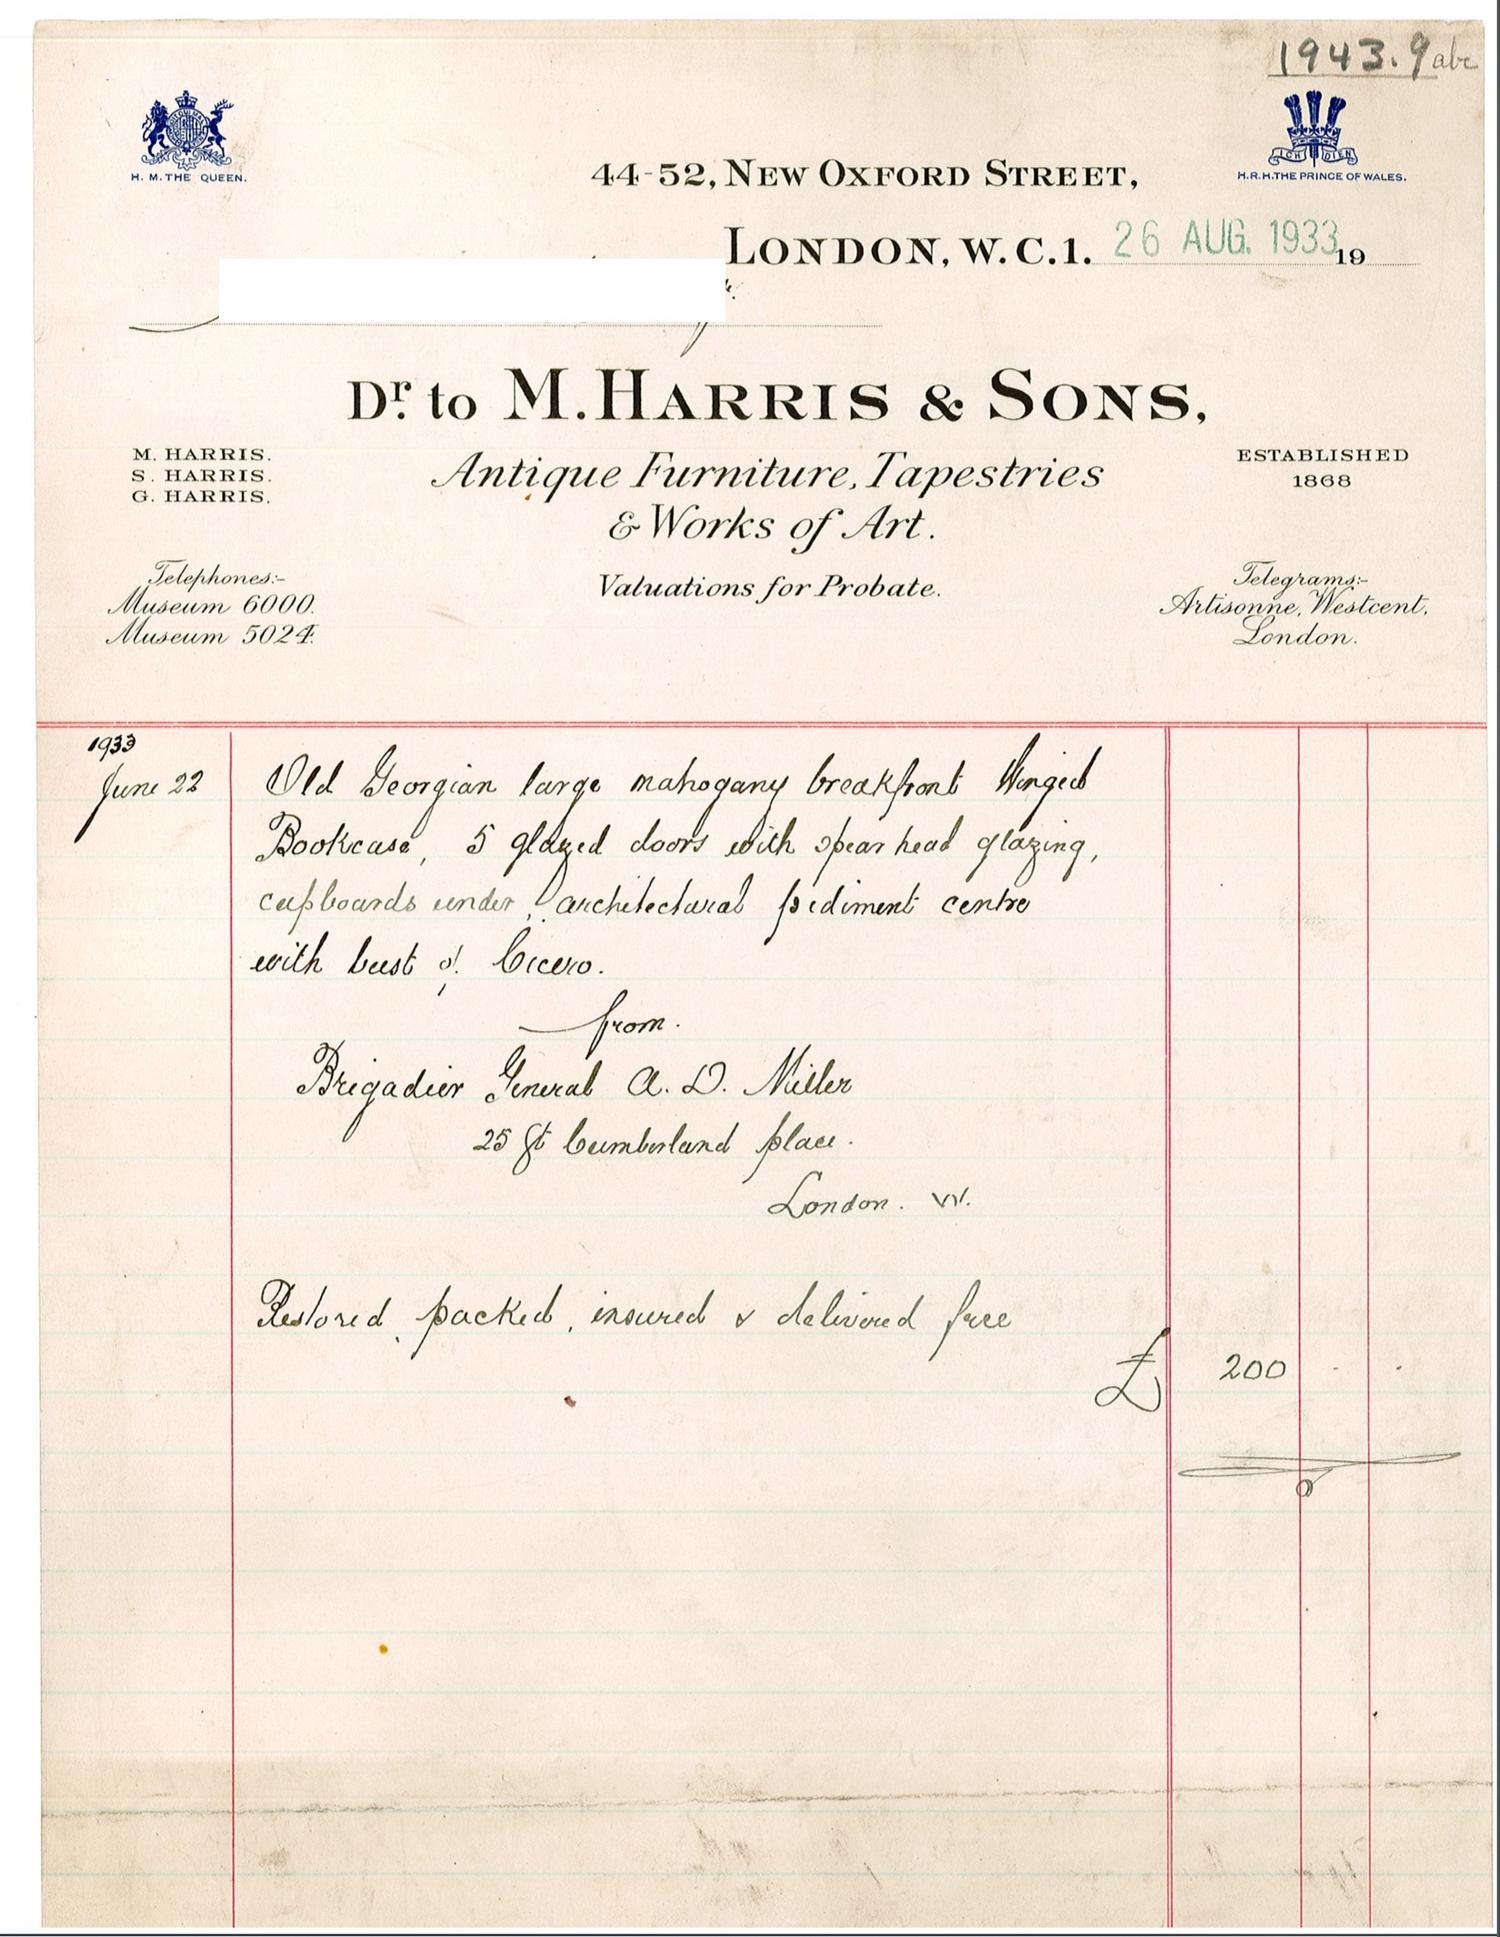 1943.9 abc
H. M. THE QUEEN.
ICH DIEN
H.R.H. THE PRINCE OF WALES.
44-52, NEW OXFORD STREET,
LONDON, W.C.1. 26 AUG. 1933 19
Dr. to M. HARRIS & SONS,
M. HARRIS.
S. HARRIS.
G. HARRIS.
Antique Furniture, Tapestries
& Works of Art.
ESTABLISHED
1868
Telephones:-
Museum 6000.
Museum 5024.
Valuations for Probate.
Telegrams:-
Artisonne, Westcent,
London.
1933
June 22
Old Georgian large mahogany breakfront Winged
Bookcase, 5 glazed doors with spear head glazing,
cupboards under, architectural pediment centre
with bust of Cicero.
from.
Brigadier General A. D. Miller
25 Gt Cumberland place.
London. W.
Restored, packed, insured & delivered free
£ 200 . .